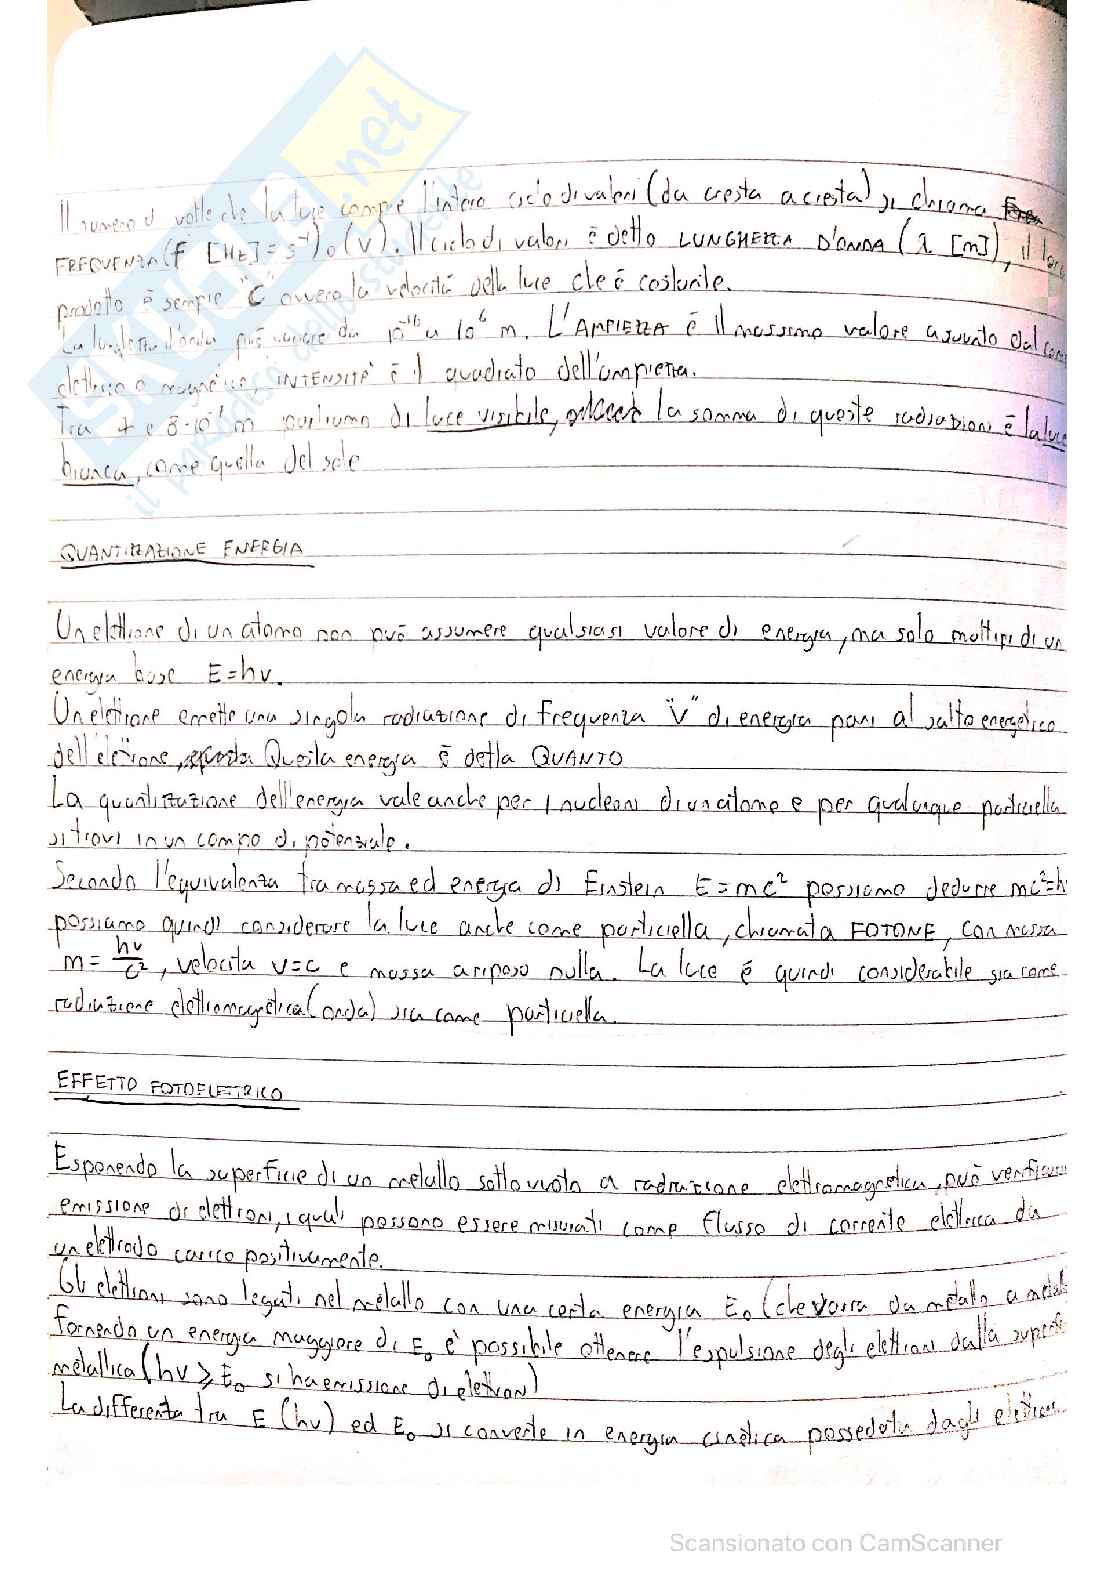 Il numero di volte che la luce compie l'intero ciclo di valori (da cresta a cresta) si chiama
FREQUENZA (f [Hz] = s⁻¹) o (ν). Il ciclo di valori è detto LUNGHEZZA D'ONDA (λ [m]), il loro
prodotto è sempre "C" ovvero la velocità della luce che è costante.
La lunghezza d'onda può variare da 10⁻¹⁶ a 10⁶ m. L'AMPIEZZA è il massimo valore assunto dal campo
elettrico o magnetico, INTENSITÀ è il quadrato dell'ampiezza.
Tra 4 e 8·10⁻⁷ m parliamo di luce visibile, la somma di queste radiazioni è la luce
bianca, come quella del sole
QUANTIZZAZIONE ENERGIA
Un elettrone di un atomo non può assumere qualsiasi valore di energia, ma solo multipi di un
energia base E=hν.
Un elettrone emette una singola radiazione di frequenza "ν" di energia pari al salto energetico
dell'elettrone, Questa energia è detta QUANTO
La quantizzazione dell'energia vale anche per i nucleoni di un atomo e per qualunque particella
si trovi in un campo di potenziale.
Secondo l'equivalenza tra massa ed energia di Einstein E=mc² possiamo dedurre mc²=h
possiamo quindi considerare la luce anche come particella, chiamata FOTONE, con massa
m = hν/c², velocità v=c e massa a riposo nulla. La luce è quindi considerabile sia come
radiazione elettromagnetica (onda) sia come particella.
EFFETTO FOTOELETRICO
Esponendo la superficie di un metallo sottovuoto a radiazione elettromagnetica, può verificarsi
emissione di elettroni, i quali possono essere misurati come flusso di corrente elettrica da
un elettrodo carico positivamente.
Gli elettroni sono legati nel metallo con una certa energia E₀ (che varia da metallo a metallo
Fornendo un energia maggiore di E₀ è possibile ottenere l'espulsione degli elettroni dalla superficie
metallica (hν ≥ E₀ si ha emissione di elettroni)
La differenza tra E (hν) ed E₀ si converte in energia cinetica posseduta dagli elettroni.
SKUOLA.net
il paradiso dello studente
Scansionato con CamScanner